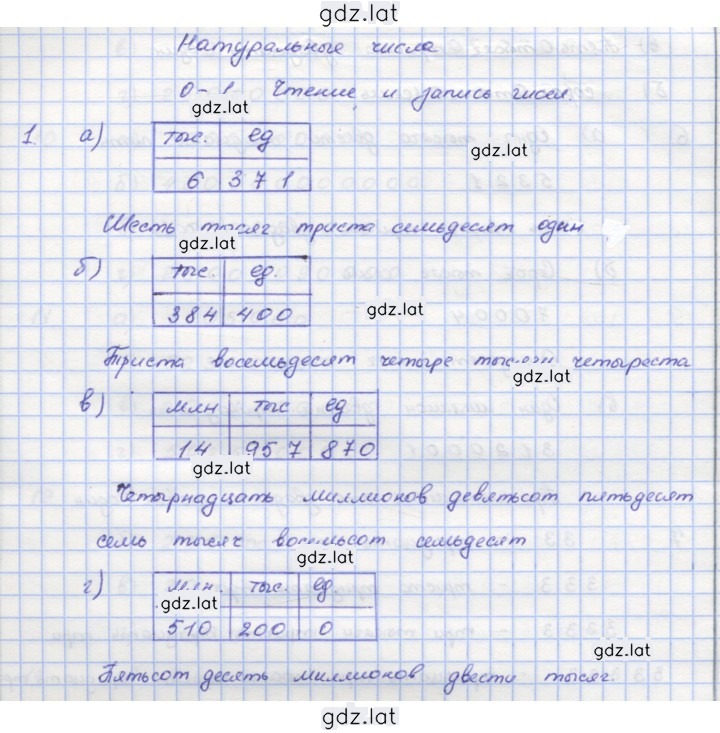 gdz.lat
Натуральные числа
0-1 Чтение и запись чисел.
gdz.lat
1 а) тыс. ед
gdz.lat
6 371
Шесть тысяч триста семьдесят один
gdz.lat
б) тыс ед.
384 400
gdz.lat
Триста восемьдесят четыре тысячи четыреста
gdz.lat
в) млн тыс ед
14 957 870
gdz.lat
Четырнадцать миллионов девятьсот пятьдесят
семь тысяч восемьсот семьдесят
gdz.lat
г) млн. тыс. ед.
gdz.lat
510 200 0
gdz.lat
Пятьсот десять миллионов двести тысяч.
gdz.lat